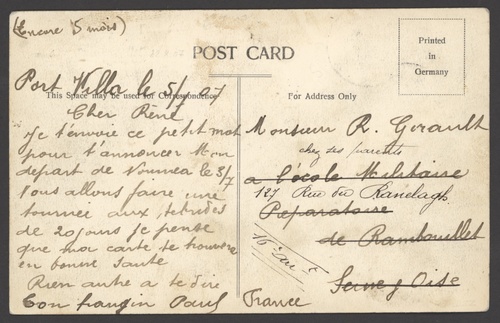 (Encore 5 mois)
POST CARD
Printed
in
Germany
Port Villa le 5/7 07
This Space may be used for Correspondence
For Address Only
Cher René
Je t'envoie ce petit mot
pour t'annoncer Mon
depart de Noumea le 3/7
Nous allons faire une
tournee aux Hebrides
de 20 jours Je pense
que ma carte te trouvera
en bonne Santé
Rien autre a te dire
Ton frangin Paul
Monsieur R. Gerault
chez ses parents
a l'école Militaire
127 Rue du Ranelagh
Préparatoire
16e
de Rambouillet
Seine & Oise
France